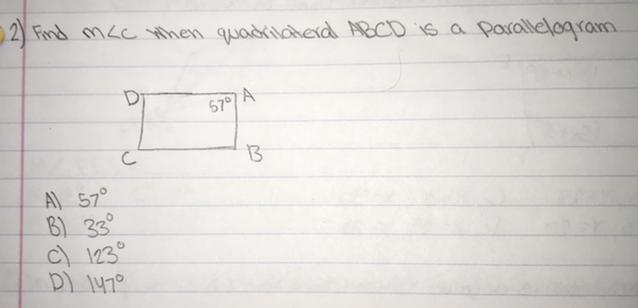 2) Find m<C when quadrilateral ABCD is a parallelogram
D 57° A
C B
A) 57°
B) 33°
C) 123°
D) 147°